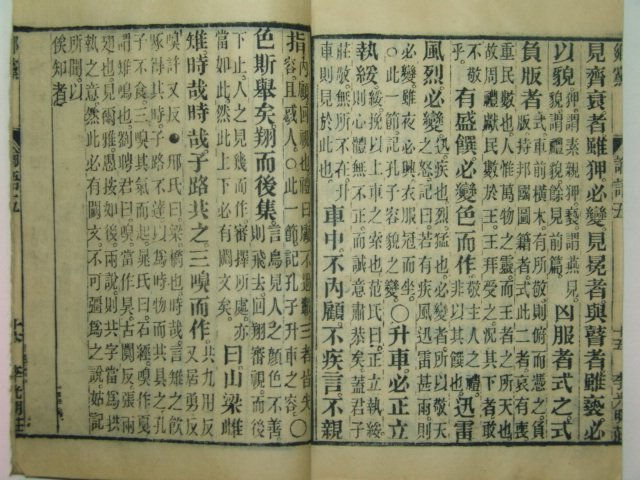 鄉黨 論語五 十五 李光明莊
見齊衰者雖狎必變見冕者與瞽者雖褻必
以貌 狎謂素親狎褻謂燕見
貌謂禮貌餘見前篇 凶服者式之式
負版者 式車前橫木有所敬則俯而憑之負
版持邦國圖籍者式此二者哀有喪
重民數也人惟萬物之靈而王者之所天也
故周禮獻民數於王王拜受之況其下者敢
不敬
乎 有盛饌必變色而作 敬主人之禮
非以其饌也 迅雷
風烈必變 迅疾也烈猛也必變者所以敬天
之怒記曰若有疾風迅雷甚雨則
必變雖夜必興衣服冠而坐
○此一節記孔子容貌之變 ○升車必正立
執綏 綏挽以上車之索也范氏曰正立執綏
則心體無不正而誠意肅恭矣蓋君子
莊敬無所不在升
車則見於此也 車中不內顧不疾言不親
指 內顧回視也禮曰顧不過轂三者皆失
容且惑人○此一節記孔子升車之容 ○
色斯舉矣翔而後集 言鳥見人之顏色不善
則飛去回翔審視而後
下止人之見幾而作審擇所處亦
當如此然此上下必有闕文矣 曰山梁雌
雉時哉時哉子路共之三嗅而作 共九用反
又居勇反
嗅許又反○邢氏曰梁橋也時哉言雉之飲
啄得其時子路不達以為時物而共具之孔
子不食三嗅其氣而起晁氏曰石經嗅作戞
謂雉鳴也劉聘君曰嗅當作狊古闃反張兩
翅也見爾雅愚按如後兩說則共字當為拱
執之意然此必有闕文不可彊為之說姑記
所聞以
俟知者
鄉黨 論語五 十六 李光明莊